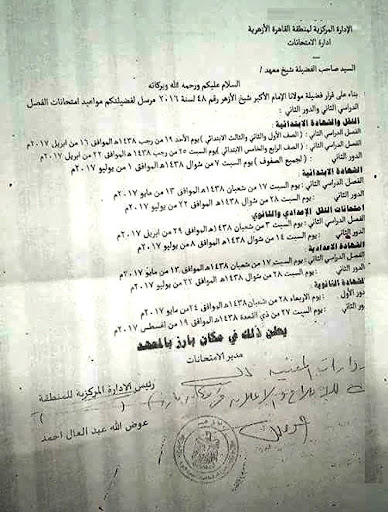 الإدارة المركزية لمنطقة القاهرة الأزهرية
ادارة الامتحانات
السيد صاحب الفضيلة شيخ معهد /
السلام عليكم ورحمه الله وبركاته
بناء على قرار فضيلة مولانا الإمام الأكبر شيخ الأزهر رقم ٤٨ لسنة ٢٠١٦ مرسل لفضيلتكم مواعيد امتحانات الفصل
الدراسي الثاني والدور الثاني :
النقل والشهادة الابتدائية :
الفصل الدراسي الثاني : ( الصف الأول والثاني والثالث الابتدائي ) يوم الأحد ١٩ من رجب ١٤٣٨هـ الموافق ١٦ من ابريل ٢٠١٧م
الفصل الدراسي الثاني : ( الصف الرابع والخامس الابتدائي ) يوم السبت ٢٥ من رجب ١٤٣٨هـ الموافق ٢٢ من ابريل ٢٠١٧م
الدور الثاني : ( لجميع الصفوف ) يوم السبت ٧ من شوال ١٤٣٨هـ الموافق ١ من يوليو ٢٠١٧م
الشهادة الابتدائية :
الفصل الدراسي الثاني : يوم السبت ١٧ من شعبان ١٤٣٨هـ الموافق ١٣ من مايو ٢٠١٧م
الدور الثاني : يوم السبت ٢٨ من شوال ١٤٣٨هـ الموافق ٢٢ من يوليو ٢٠١٧م
امتحانات النقل الإعدادي والثانوي
الفصل الدراسي الثاني : يوم السبت ٣ من شعبان ١٤٣٨هـ الموافق ٢٩ من ابريل ٢٠١٧م
الدور الثاني : يوم السبت ١٤ من شوال ١٤٣٨هـ الموافق ٨ من يوليو ٢٠١٧م
الشهادة الاعدادية :
الفصل الدراسي الثاني : يوم السبت ١٧ من شعبان ١٤٣٨هـ الموافق ١٣ من مايو ٢٠١٧م
الدور الثاني : يوم السبت ٢٨ من شوال ١٤٣٨هـ الموافق ٢٢ من يوليو ٢٠١٧م
الشهادة الثانوية :
الدور الأول : يوم الاربعاء ٢٨ من شعبان ١٤٣٨هـ الموافق ٢٤ من مايو ٢٠١٧م
الدور الثاني : يوم السبت ٢٧ من ذي القعدة ١٤٣٨هـ الموافق ١٩ من اغسطس ٢٠١٧م
يعلن ذلك في مكان بارز بالمعهد
مدير الامتحانات
رئيس الإدارة المركزية للمنطقة
( )
عوض الله عبد العال احمد